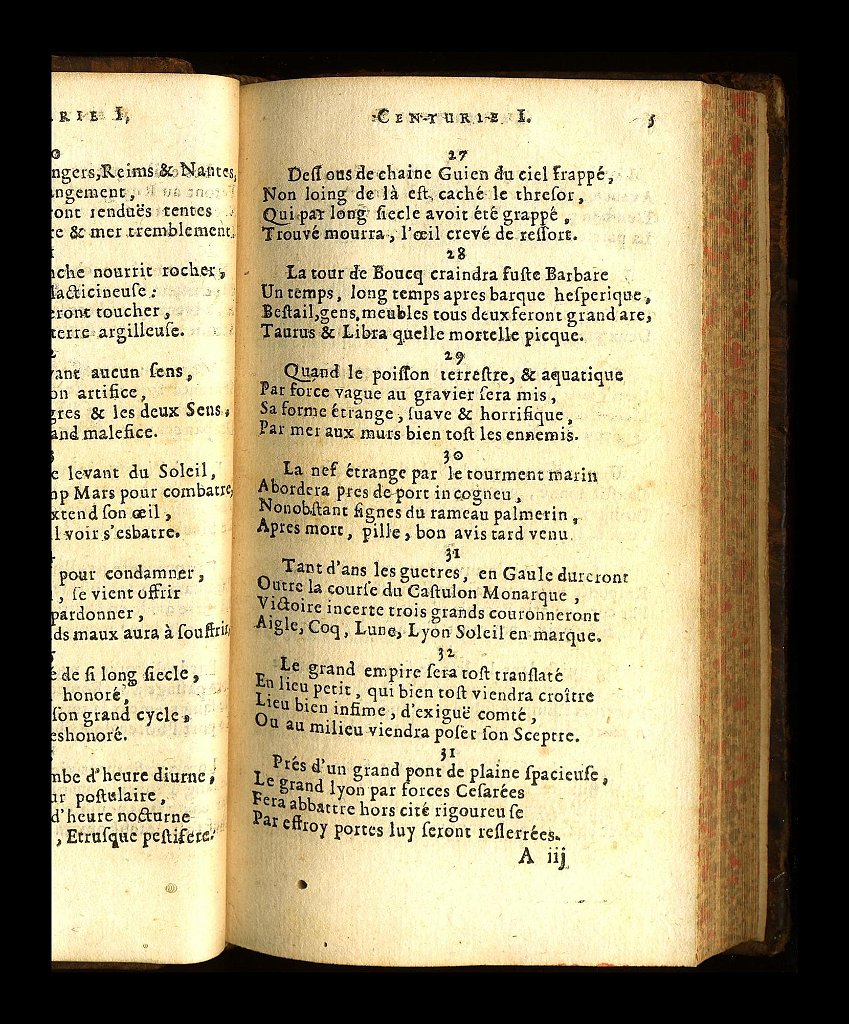 RIE I,
0
ngers, Reims & Nantes,
ngement,
ront renduës tentes
re & mer tremblement.
che nourrit rocher,
lacticineuse:
eront toucher,
terre argilleuse.
vant aucun sens,
on artifice,
gres & les deux Sens,
and malefice.
e levant du Soleil,
mp Mars pour combatre,
xtend son œil,
l voir s'esbatre.
pour condamner,
, se vient offrir
pardonner,
ds maux aura à souffrir,
é de si long siecle,
honoré,
son grand cycle,
eshonoré.
mbe d'heure diurne,
ur postulaire,
d'heure nocturne
, Etrusque pestifere.
CENTURIE I. 5
27
Dess ous de chaine Guien du ciel frappé,
Non loing de là est caché le thresor,
Qui par long siecle avoit été grappé,
Trouvé mourra, l'œil crevé de ressort.
28
La tour de Boucq craindra fuste Barbare
Un temps, long temps apres barque hesperique,
Bestail, gens, meubles tous deux feront grand are,
Taurus & Libra quelle mortelle picque.
29
Quand le poisson terrestre, & aquatique
Par force vague au gravier sera mis,
Sa forme étrange, suave & horrifique,
Par mer aux murs bien tost les ennemis.
30
La nef étrange par le tourment marin
Abordera pres de port incogneu,
Nonobstant signes du rameau palmerin,
Apres mort, pille, bon avis tard venu
31
Tant d'ans les guetres, en Gaule dureront
Outre la course du Castulon Monarque,
Victoire incerte trois grands couronneront
Aigle, Coq, Lune, Lyon Soleil en marque.
32
Le grand empire sera tost translaté
En lieu petit, qui bien tost viendra croître
Lieu bien infime, d'exiguë comté,
Ou au milieu viendra poser son Sceptre.
31
Prés d'un grand pont de plaine spacieuse,
Le grand lyon par forces Cesarées
Fera abbattre hors cité rigoureuse
Par effroy portes luy seront reslerrées.
A iij